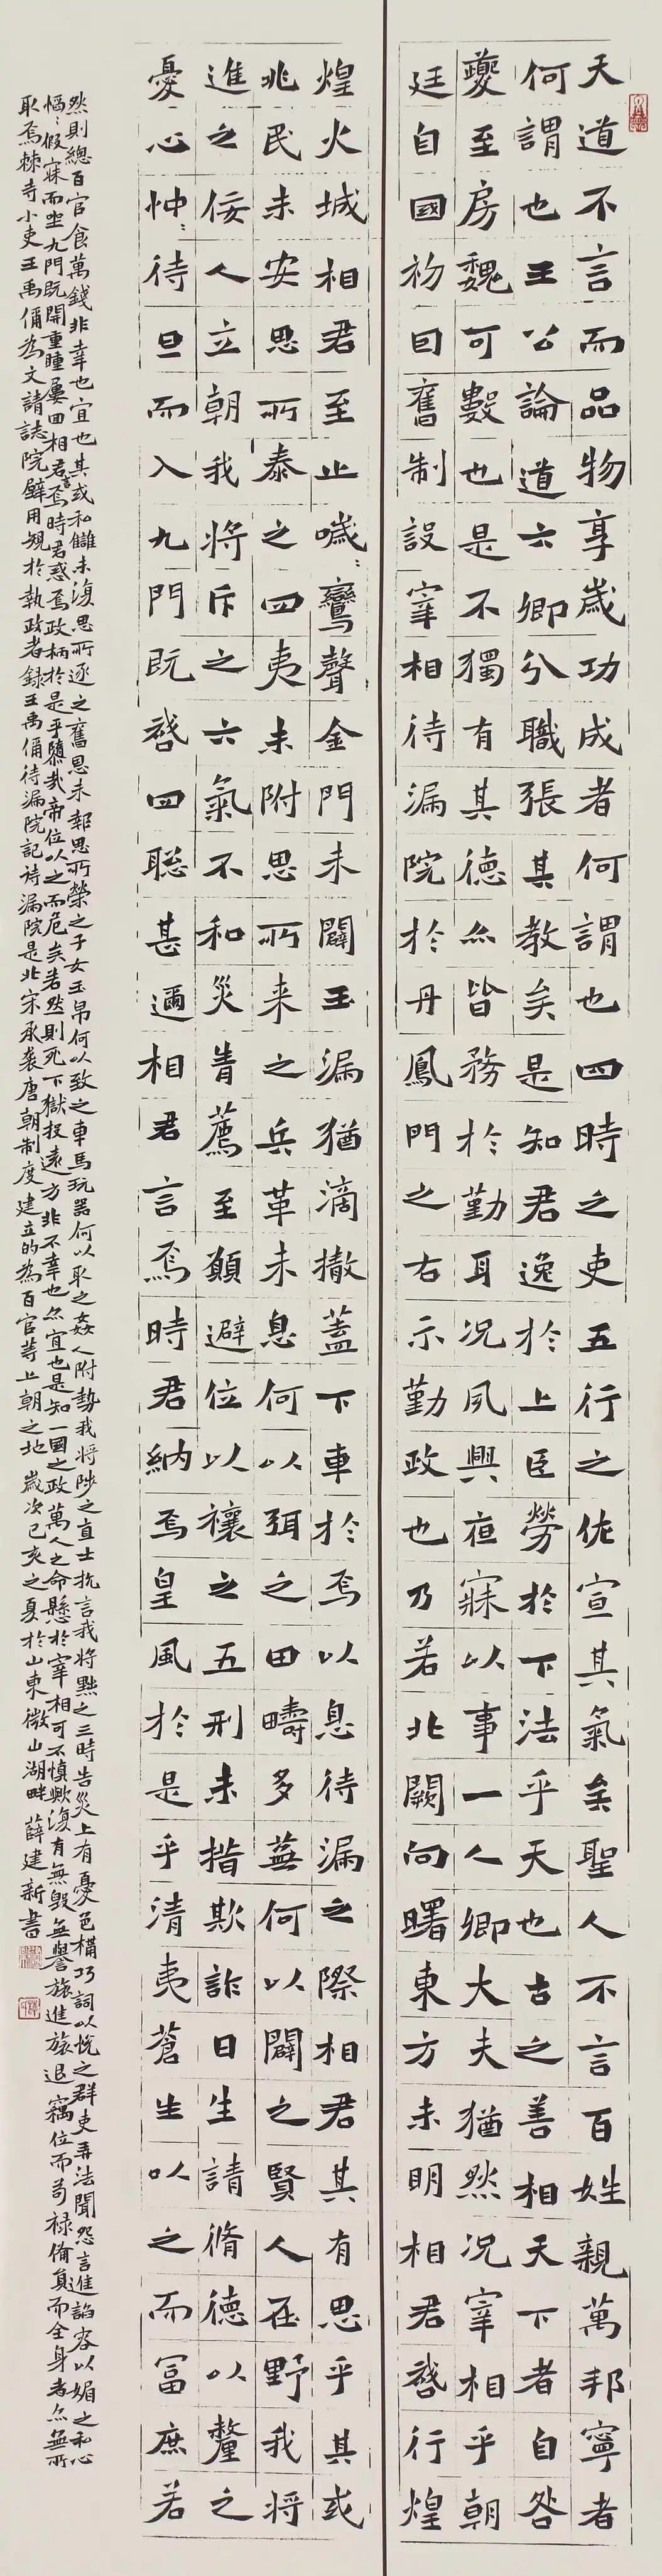 天道不言而品物享歲功成者何謂也四時之吏五行之佐宣其氣矣聖人不言百姓親萬邦寧者
何謂也王公論道六卿分職張其教矣是知君逸於上臣勞於下法乎天也古之善相天下者自咎
夔至房魏可數也是不獨有其德亦皆務於勤耳况夙興夜寐以事一人卿大夫猶然况宰相乎朝
廷自國初因舊制設宰相待漏院於丹鳳門之右示勤政也乃若北闕向曙東方未明相君啓行煌
煌火城相君至止噦:鸞聲金門未闢玉漏猶滴撤蓋下車於焉以息待漏之際相君其有思乎其或
兆民未安思所泰之四夷未附思所来之兵革未息何以弭之田疇多蕪何以闢之賢人在野我將
進之佞人立朝我將斥之六氣不和災眚薦至願避位以禳之五刑未措欺詐日生請脩德以釐之
憂心忡:待旦而入九門既啓四聪甚邇相君言焉時君納焉皇風於是乎清夷蒼生以之而富庶若
然則總百官食萬錢非幸也宜也其或私讎未復思所逐之舊恩未報思所榮之子女玉帛何以致之車馬玩器何以取之姦人附勢我將陟之直士抗言我將黜之三時告災上有憂色構巧詞以悅之群吏弄法聞怨言進諂容以媚之私心
慆:假寐而坐九門既開重瞳屢回相君言焉時君惑焉政柄於是乎隳哉帝位以之而危矣若然則死下獄投遠方非不幸也亦宜也是知一國之政萬人之命懸於宰相可不慎歟復有無毀無譽旅進旅退竊位而苟禄備員而全身者亦無所
取焉棘寺小吏王禹偁為文請誌院壁用規於執政者録王禹偁待漏院記待漏院是北宋承袭唐朝制度建立的為百官等上朝之地歲次己亥之夏於山東微山湖畔薛建新書